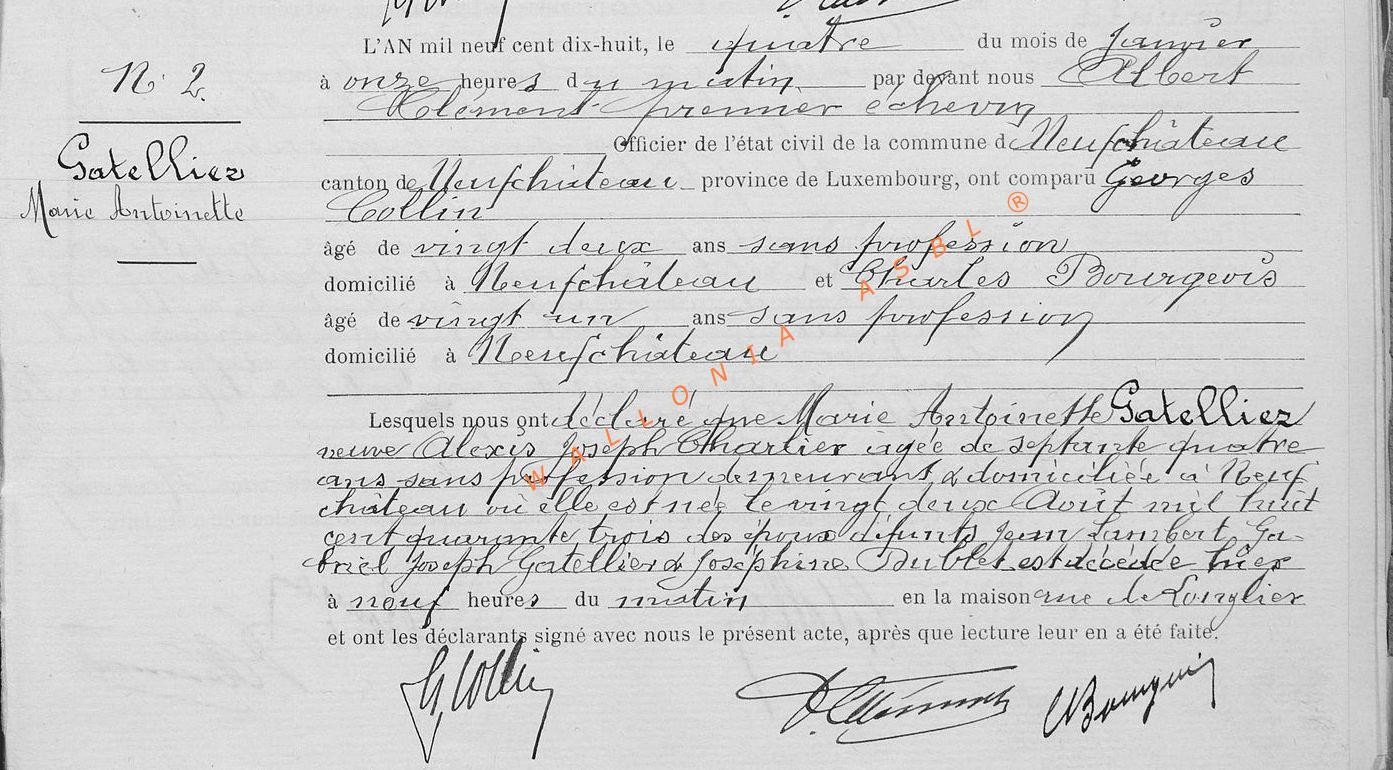 L'AN mil neuf cent dix-huit, le quatre du mois de Janvier
N° 2.
à onze heures du matin par devant nous Albert
Clément premier échevin
Officier de l'état civil de la commune de Neufchâteau
Gatelliez
Marie Antoinette
canton de Neufchâteau province de Luxembourg, ont comparu Georges
Collin
âgé de vingt deux ans sans profession
domicilié à Neufchâteau et Charles Bourgeois
âgé de vingt un ans sans profession
domicilié à Neufchâteau
Lesquels nous ont déclaré que Marie Antoinette Gatelliez
veuve Alexis Joseph Charlier âgée de septante quatre
ans sans profession demeurant & domiciliée à Neuf
château où elle est née le vingt deux Août mil huit
cent quarante trois des époux défunts Jean Lambert Ga-
briel Joseph Gatellier & Joséphine Dublet est décédée hier
à neuf heures du matin en la maison rue de Longlier
et ont les déclarants signé avec nous le présent acte, après que lecture leur en a été faite.
G Collin
WALLONIA ASBL ®